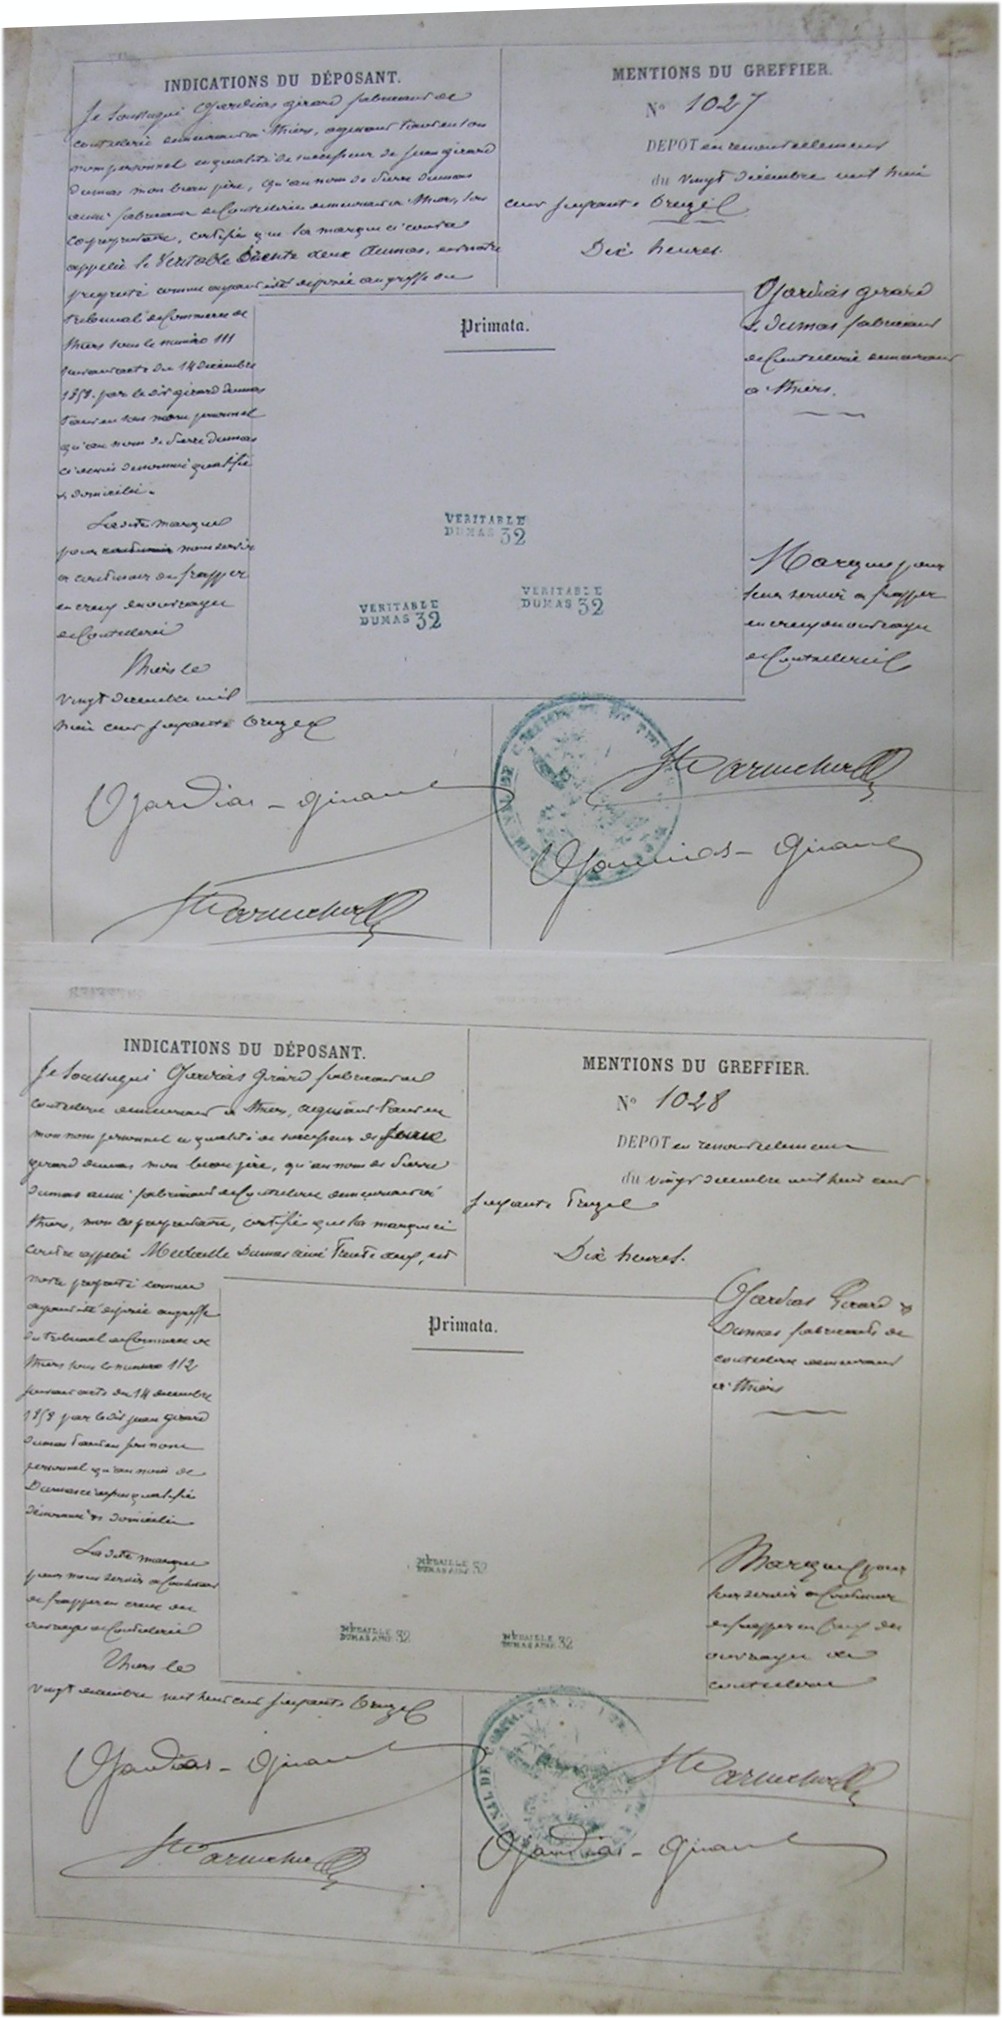 INDICATIONS DU DÉPOSANT.
Je soussigné Ojardias girard fabricant de
coutellerie demeurant à Thiers, agissant tant en son
nom personnel en qualité de successeur de Jean girard
dumas mon beau père, qu'au nom de Pierre dumas
aussi fabricant de Coutellerie demeurant à Thiers, son
copropriétaire, certifie que la marque ci contre
appelée le Véritable trente deux dumas, est notre
propriété comme ayant été déposée au greffe du
Tribunal de Commerce de
Thiers sous le numéro 111
suivant acte du 14 décembre
1858 par le dit girard dumas
tant en son nom personnel
qu'au nom de Pierre dumas
ci dessus dénommé qualifié
& domicilié.
Ladite marque
pour nous servir
à continuer de frapper
en creux en ouvrages
de Coutellerie
Thiers le
vingt décembre mil
huit cent soixante treize
Ojardias-Girard
MENTIONS DU GREFFIER.
N° 1027
DEPOT en renouvellement
du vingt décembre mil huit
cent soixante treize
Dix heures.
Primata.
VERITABLE
DUMAS 32
VERITABLE
DUMAS 32
VERITABLE
DUMAS 32
Ojardias girard
& dumas fabricants
de Coutellerie demeurant
à Thiers.
Marque pour
leur servir à frapper
en creux en ouvrages
de Coutellerie
Ojardias-Girard
INDICATIONS DU DÉPOSANT.
Je soussigné Ojardias Girard fabricant de
coutellerie demeurant à Thiers, agissant tant en
mon nom personnel en qualité de successeur de Jean
girard dumas mon beau père, qu'au nom de Pierre
dumas aussi fabricant de Coutellerie demeurant à
Thiers, mon copropriétaire, certifie que la marque ci
contre appelée Médaille Dumas aîné Trente deux, est
notre propriété comme
ayant été déposée au greffe
du tribunal de Commerce de
Thiers sous le numéro 112
suivant acte du 14 décembre
1858 par le dit jean girard
dumas tant en son nom
personnel qu'au nom de
Dumas qualifié
dénommé & domicilié
Ladite marque
pour nous servir à Continuer
de frapper en creux des
ouvrages de Coutellerie
Thiers le
vingt décembre mil huit cent soixante treize
Ojardias-Girard
MENTIONS DU GREFFIER.
N° 1028
DEPOT en renouvellement
du vingt décembre mil huit cent
soixante treize
Dix heures.
Primata.
MÉDAILLE
DUMAS AINÉ 32
MÉDAILLE
DUMAS AINÉ 32
MÉDAILLE
DUMAS AINÉ 32
Ojardias Girard &
Dumas fabricants de
coutellerie demeurant
à Thiers
Marque pour
leur servir à Continuer
de frapper en creux des
ouvrages de
coutellerie
Ojardias-Girard